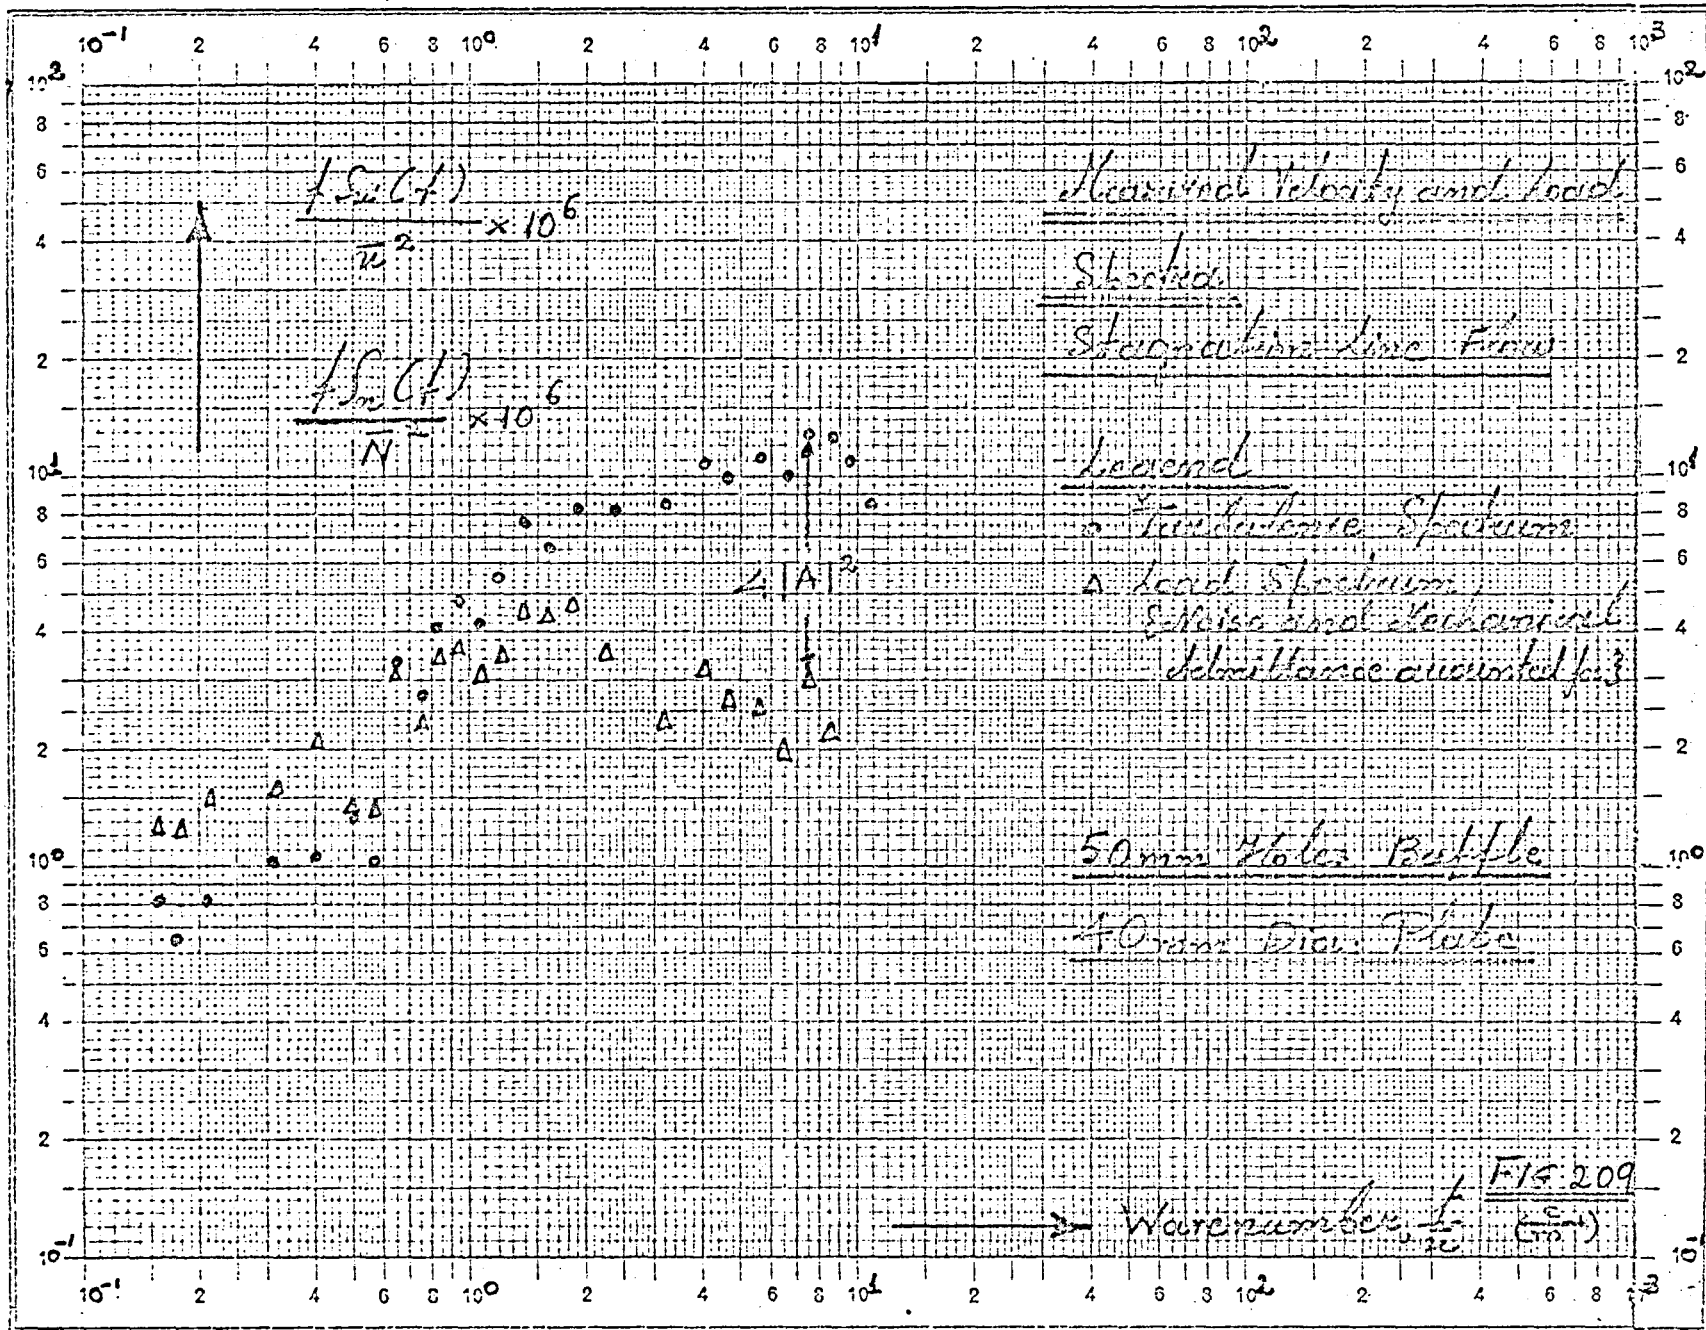 10⁻¹ 2 4 6 8 10⁰ 2 4 6 8 10¹ 2 4 6 8 10² 2 4 6 8 10³
10² 8 6 4 2 10¹ 8 6 4 2 10⁰ 8 6 4 2 10⁻¹
f Su(f) / ū² × 10⁶
f Sn(f) / N̄² × 10⁶
4|A|²
Measured Velocity and Load
Spectra
Stagnation Line Flow
Legend
o Turbulence Spectrum
Δ Load Spectrum
{Noise and Mechanical
Admittance accounted for}
50mm Holes Baffle
40mm Dia. Plate
FIG 209
Wavenumber, f/ū
10² 8 6 4 2 10¹ 8 6 4 2 10⁰ 8 6 4 2 10⁻¹
10⁻¹ 2 4 6 8 10⁰ 2 4 6 8 10¹ 2 4 6 8 10² 2 4 6 8